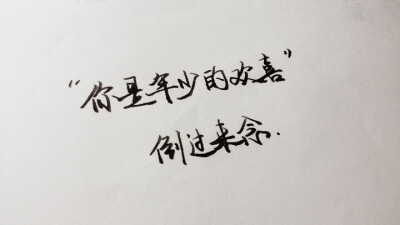 “你是年少的欢喜”
倒过来念.